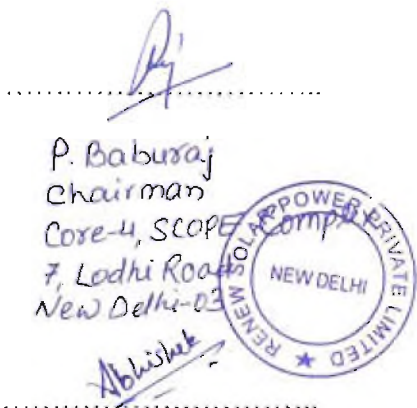 P. Baburaj
Chairman
Core-4, SCOPE Complex
7, Lodhi Road
New Delhi-03
RENEW SOLAR POWER PRIVATE LIMITED ★
NEW DELHI
Abhishek